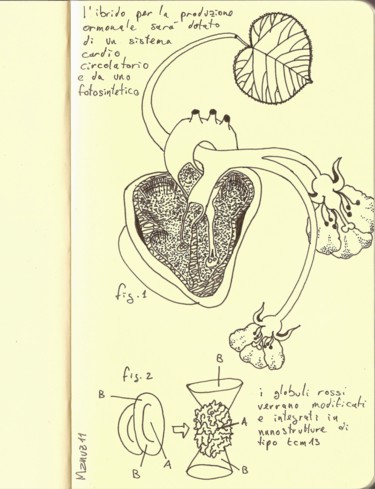 l'ibrido per la produzione
ormonale sarà dotato
di un sistema
cardio
circolatorio
e da uno
fotosintetico
fig.1
fig.2
B
B
A
B
A
B
i globuli rossi
verrano modificati
e integrati in
nanostrutture di
tipo tcm13